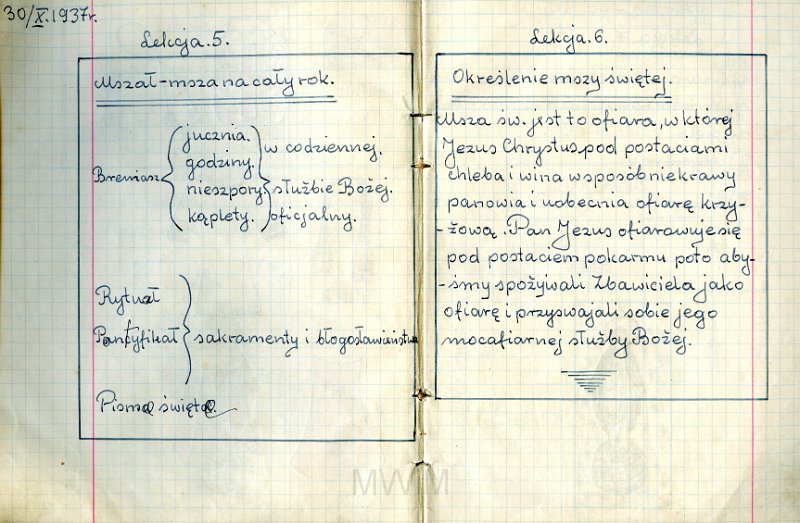 30/X.1937r.
Lekcja.5.
Mszał-msza na cały rok.
Brewiasz { jucznia.
godziny.
nieszpory
kąplety. } w codziennej.
służbie Bożej.
oficjalny.
Rytuał
Pontyfikał } sakramenty i błogosławieństwa
Pisma święta.
Lekcja.6.
Określenie mszy świętej.
Msza św. jest to ofiara, w której
Jezus Chrystus pod postaciami
chleba i wina w sposób niekrawy
panowia i uobecnia ofiarę krzy-
-żową. Pan Jezus ofiarowuje się
pod postaciem pokarmu poto aby-
-śmy spożywali Zbawiciela jako
ofiarę i przyswajali sobie jego
mocafiarnej służby Bożej.
MWM